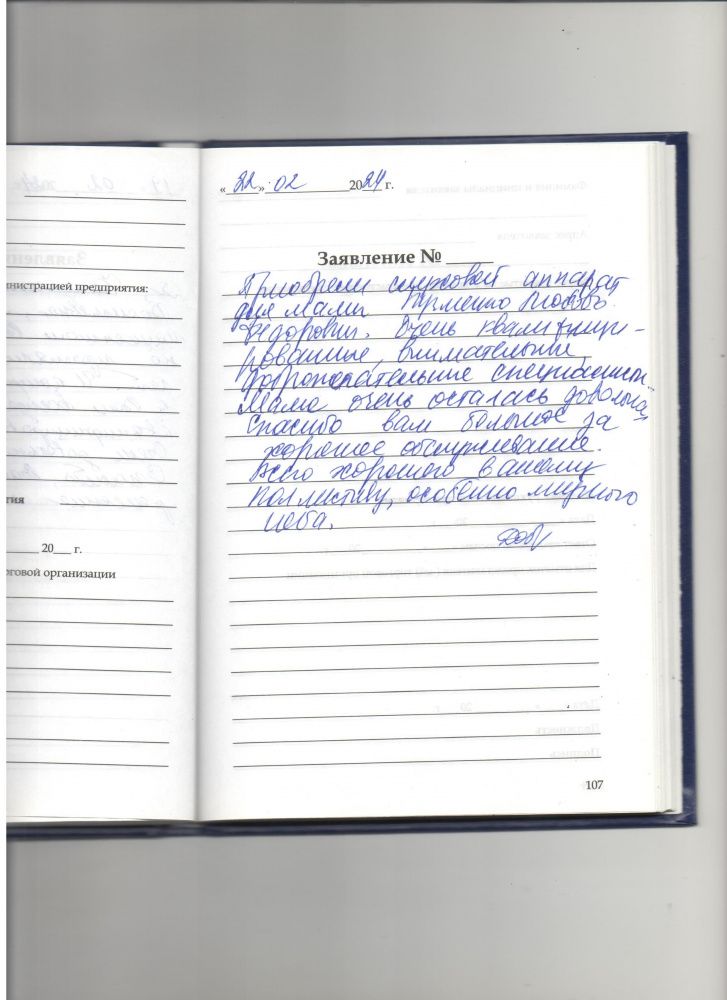 «22» 02 2024 г.
Заявление №
Приобрели слуховой аппарат
для мамы
Федоровны. Очень квалифици-
рованные, внимательные,
доброжелательные специалисты.
Мама очень осталась довольна.
Спасибо вам большое за
хорошее обслуживание.
Всего хорошего вашему
коллективу, особенно мирного
неба.
инистрацией предприятия:
тия
20 г.
рговой организации
107